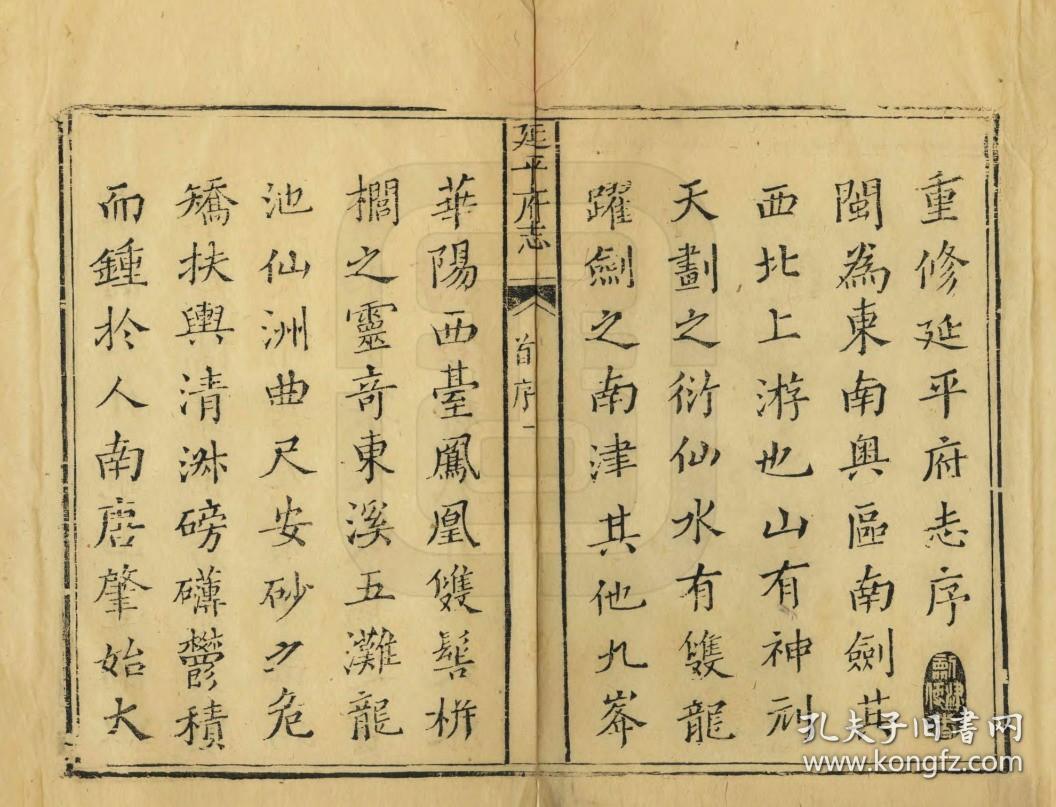 重修延平府志序
閩為東南奧區南劍其
西北上游也山有神刓
天劃之衍仙水有雙龍
躍劍之南津其他九峯
延平府志
首序
一
華陽西臺鳳凰雙髻栟
櫚之靈奇東溪五灘龍
池仙洲曲尺安砂之危
矯扶輿清淑磅礴鬱積
而鍾於人南唐肇始大
孔夫子旧书网
www.kongfz.com